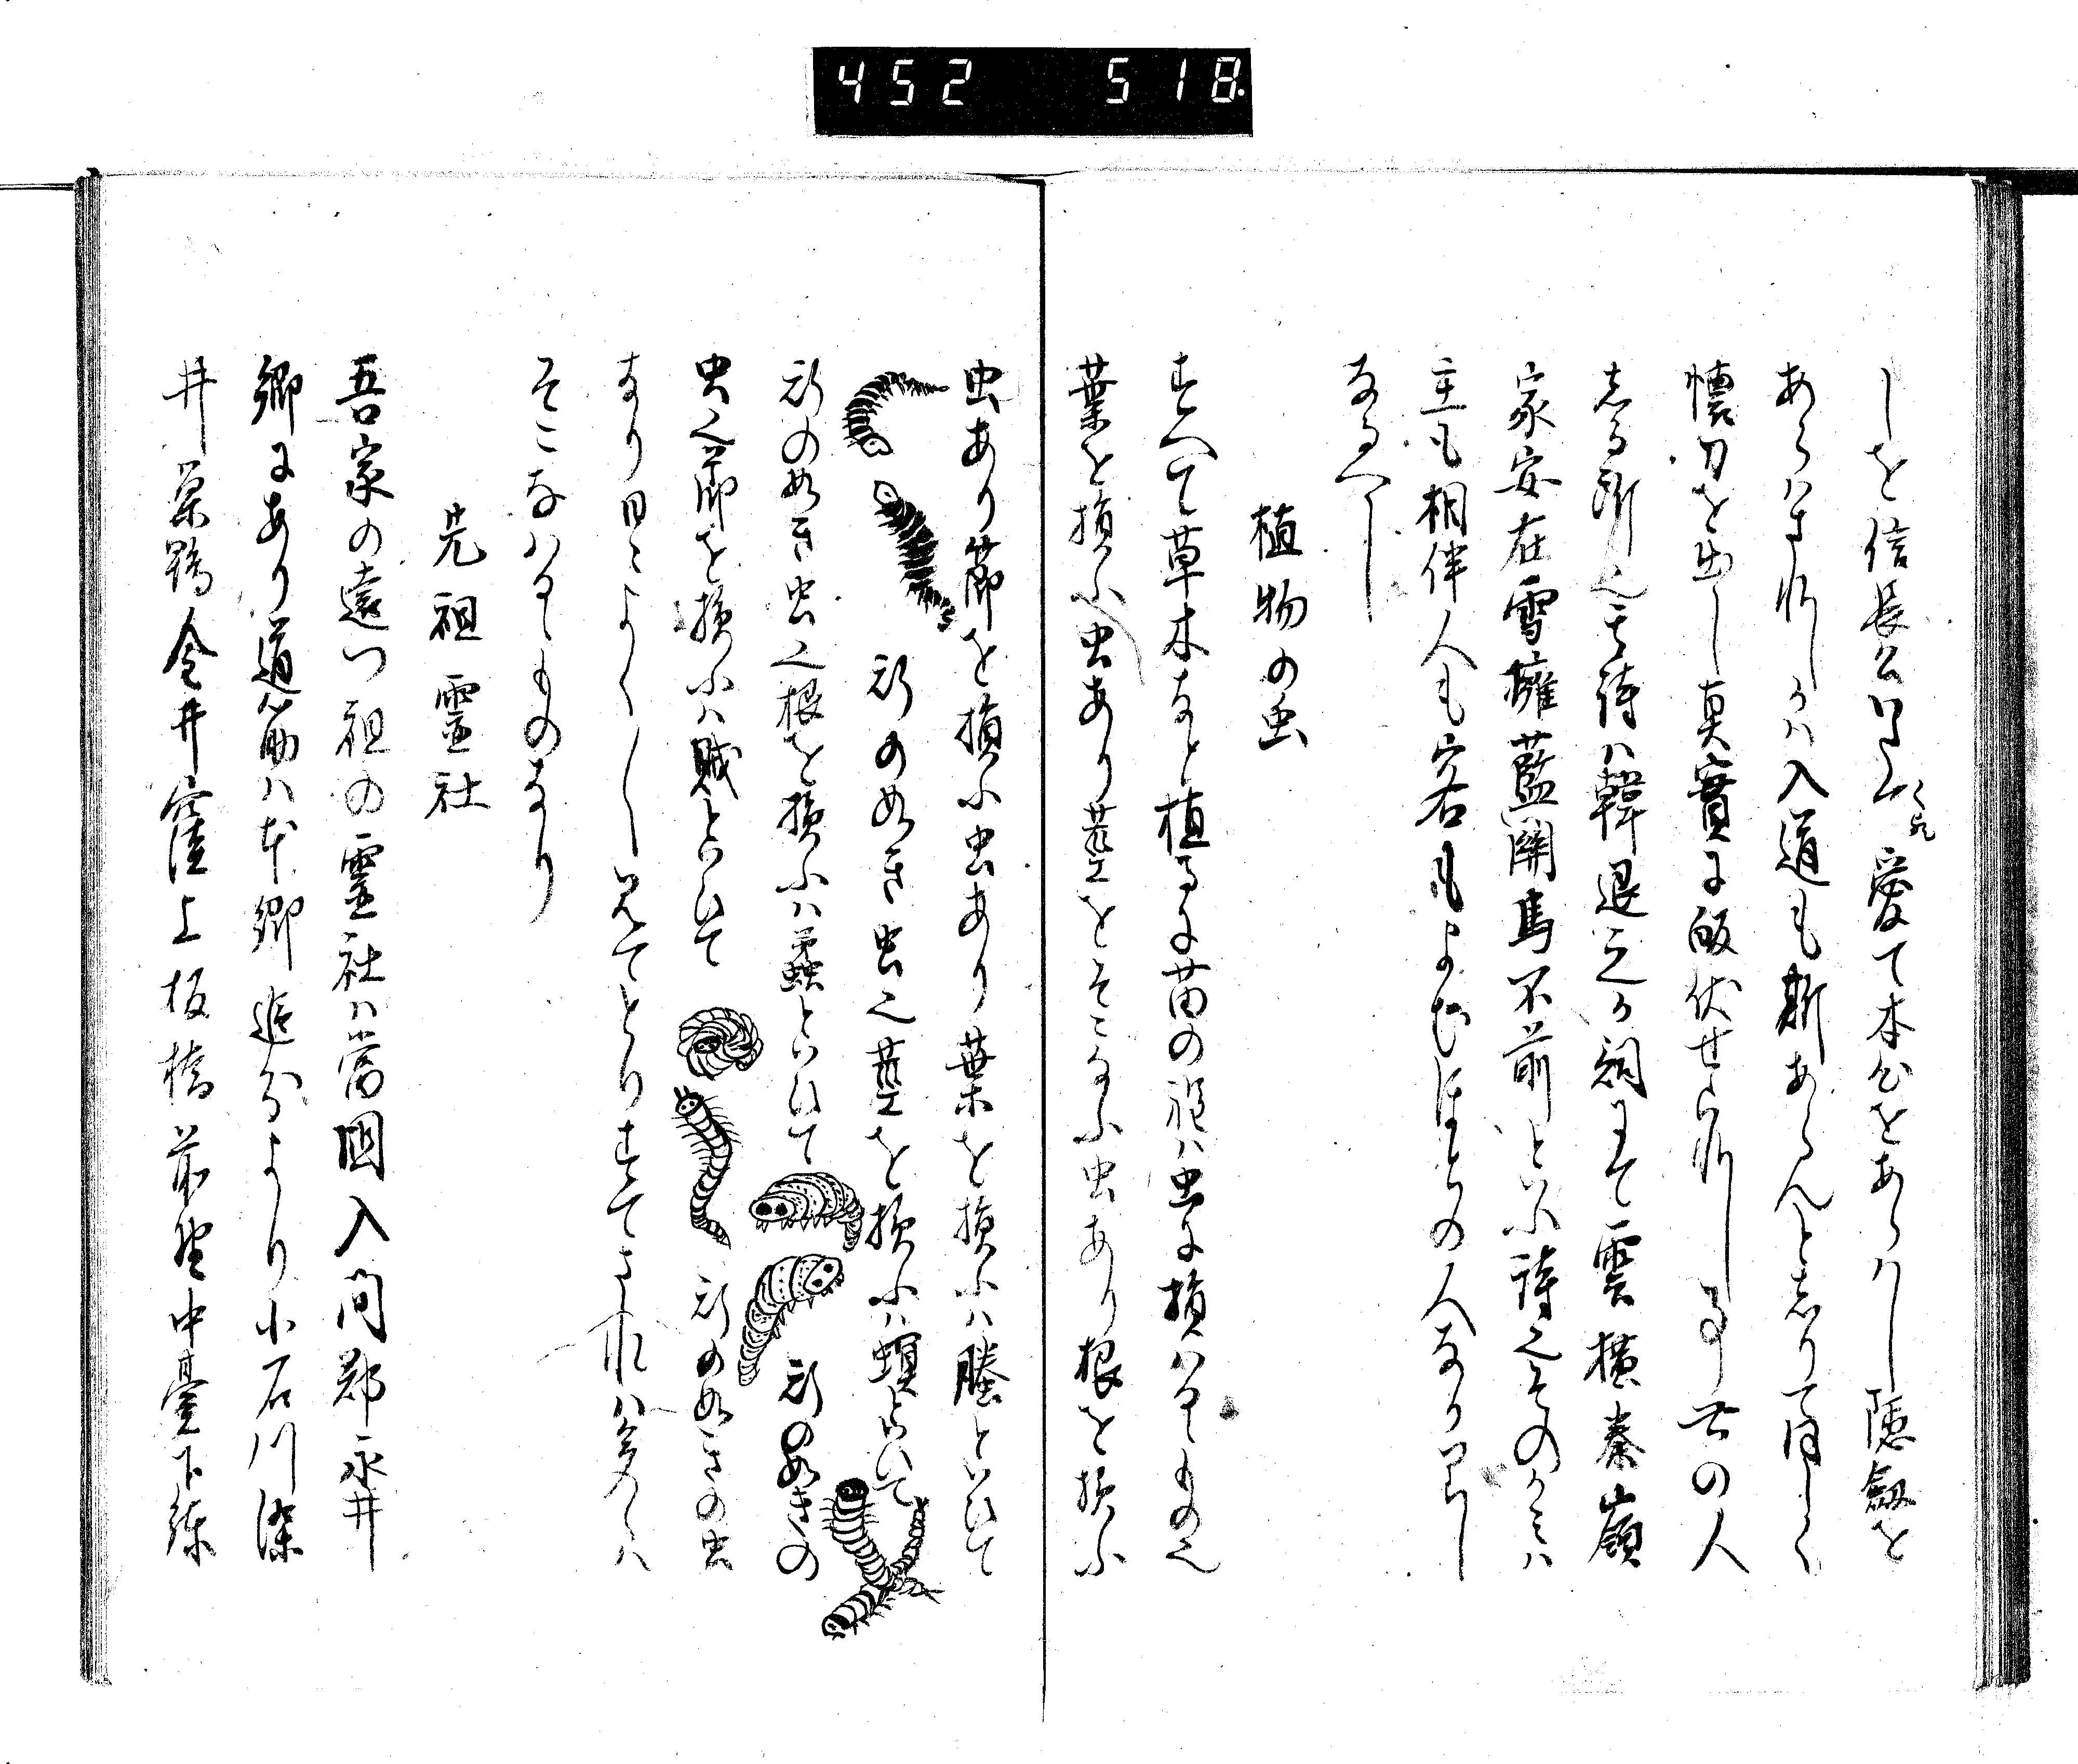 452 518.
しを信長公いたく愛て本心をあらハし隠劔を
あらハされしかハ入道も斯あらんとしりてほしく
懐刀を出し真實に皈伏せられし事世の人
しる所也其詩ハ韓退之か詞にて雲横秦嶺
家安在雪擁藍關馬不前といふ詩也そのかミハ
主も相伴人も客もよむほとの人なりけらし
なるへし
植物の虫
すへて草木なと植るに苗の程ハ虫に損ハるゝもの也
葉を損ふ虫あり莖をそこなふ虫あり根を損ふ
虫あり節を損ふ虫あり葉を損ふハ螣といひて
形のぬき虫也莖を損ふハ螟といひて
形の如き虫也根を損ふハ蟊といひて
形の如きの
虫也節を損ふハ賊といひて
形の如きの虫
なり日々よく〳〵見てとりすてされハ多くハ
そこなハるゝものなり
先祖靈社
吾家の遠つ祖の靈社ハ當國入間郡永井
郷にあり道筋ハ本郷追分より小石川深
井巣鴨金井窪上板橋前野中臺下練